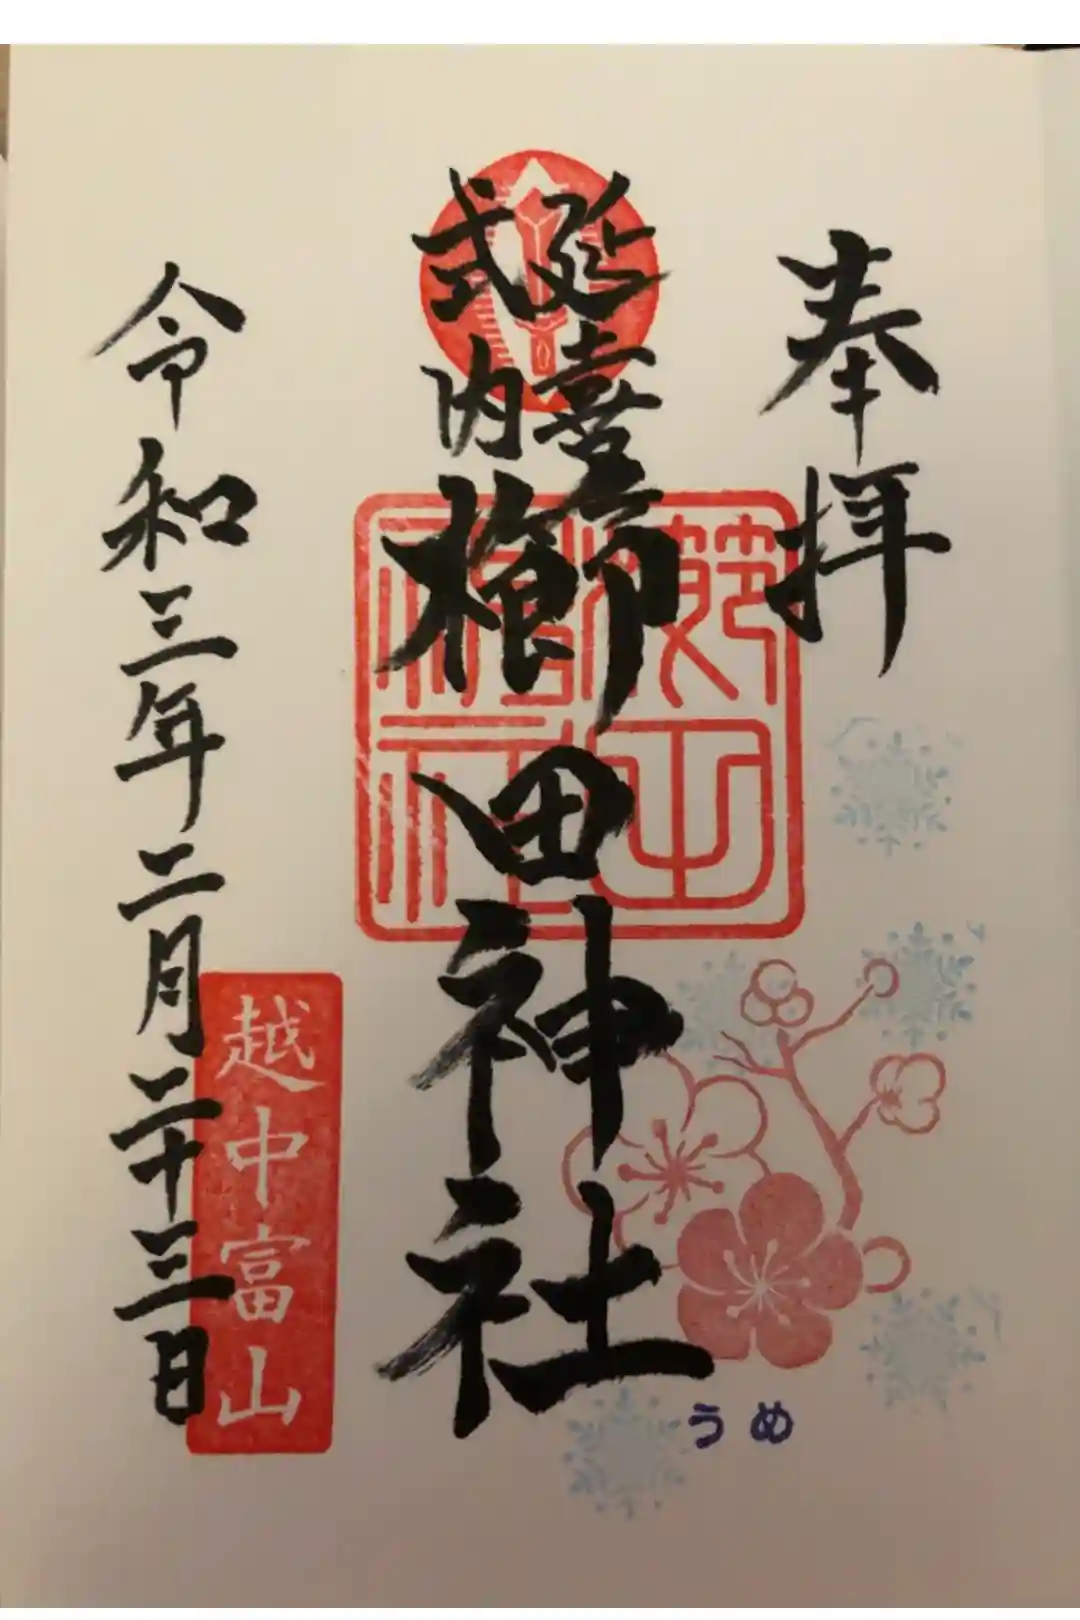 奉拝
延喜
式内
櫛田神社
令和三年二月二十三日
越中富山
うめ